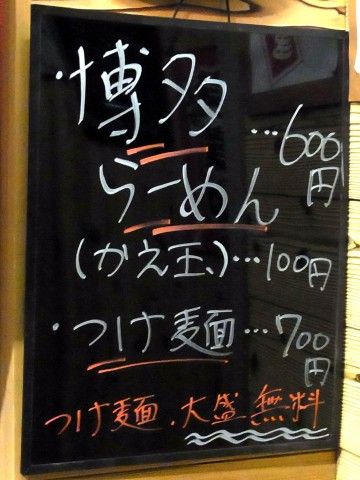 ・博多
らーめん…600円
(かえ玉)…100円
・つけ麺…700円
つけ麺、大盛無料